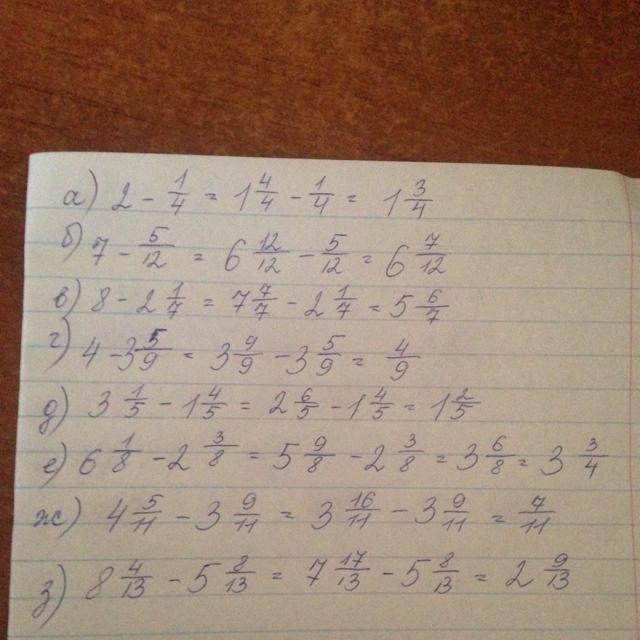 а) 2 - 1/4 = 1 4/4 - 1/4 = 1 3/4
б) 7 - 5/12 = 6 12/12 - 5/12 = 6 7/12
в) 8 - 2 1/7 = 7 7/7 - 2 1/7 = 5 6/7
г) 4 - 3 5/9 = 3 9/9 - 3 5/9 = 4/9
д) 3 1/5 - 1 4/5 = 2 6/5 - 1 4/5 = 1 2/5
е) 6 1/8 - 2 3/8 = 5 9/8 - 2 3/8 = 3 6/8 = 3 3/4
ж) 4 5/11 - 3 9/11 = 3 16/11 - 3 9/11 = 7/11
з) 8 4/13 - 5 8/13 = 7 17/13 - 5 8/13 = 2 9/13